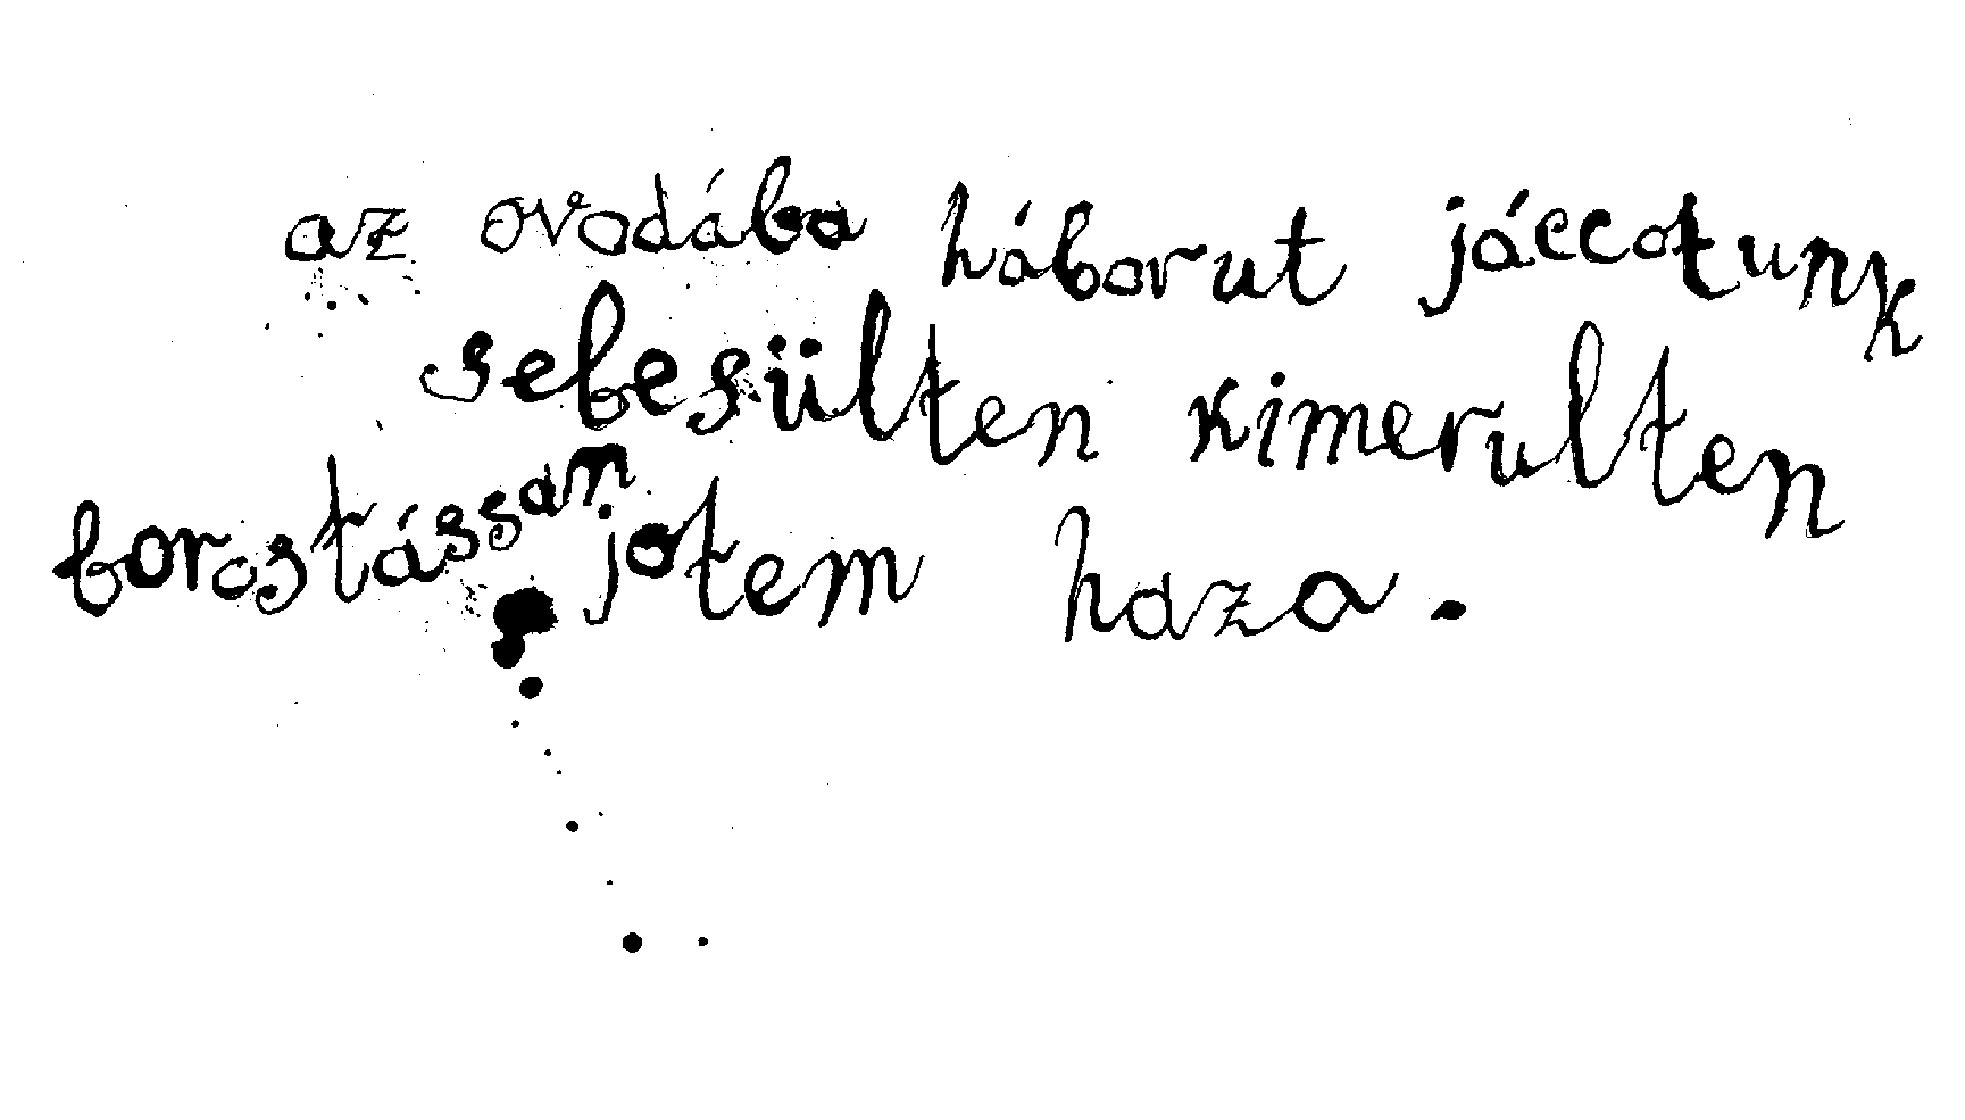 az ovodába háborut jáccotunk
sebesülten kimerulten
borostássan jotem haza.